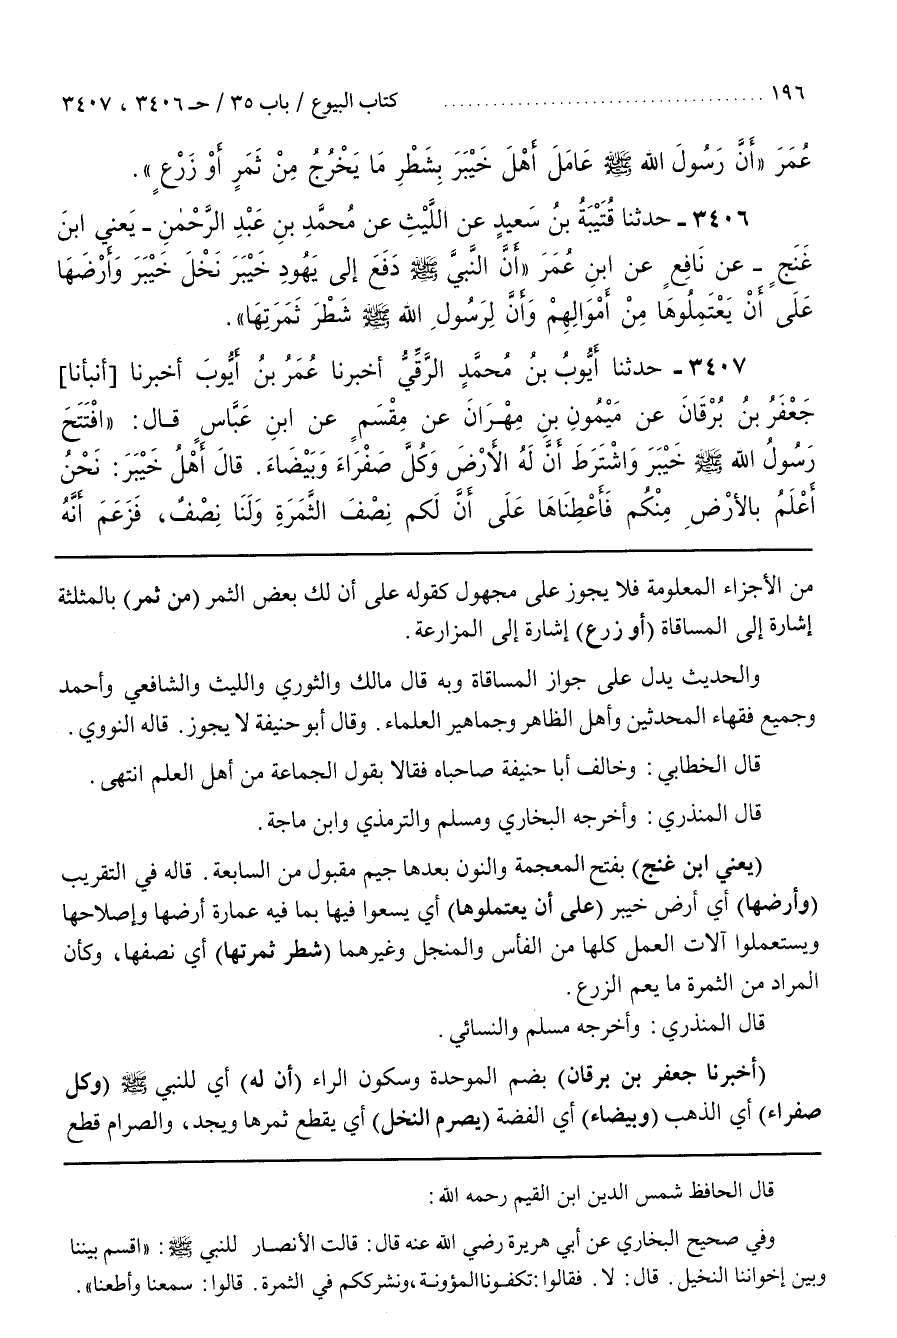 ١٩٦ ........................................ كتاب البيوع / باب ٣٥ / حـ ٣٤٠٦ ، ٣٤٠٧
عُمَرَ «أَنَّ رَسُولَ الله ﷺ عَامَلَ أَهْلَ خَيْبَرَ بِشَطْرِ مَا يَخْرُجُ مِنْ ثَمَرٍ أَوْ زَرْعٍ».
٣٤٠٦ ـ حدثنا قُتَيْبَةُ بنُ سَعيدٍ عن اللَّيْثِ عن مُحمَّدِ بنِ عَبْدِ الرَّحْمٰنِ ـ يَعني ابنَ
غَنَجٍ ـ عن نَافِعٍ عن ابنِ عُمَرَ «أَنَّ النَّبيَّ ﷺ دَفَعَ إلى يَهُودِ خَيْبَرَ نَخْلَ خَيْبَرَ وَأَرْضَهَا
عَلَى أَنْ يَعْتَمِلُوهَا مِنْ أَمْوَالِهِمْ وَأَنَّ لِرَسُولِ الله ﷺ شَطْرَ ثَمَرَتِهَا».
٣٤٠٧ ـ حدثنا أَيُّوبُ بنُ مُحمَّدٍ الرَّقِّيُّ أخبرنا عُمَرُ بنُ أَيُّوبَ أخبرنا [أنبأنا]
جَعْفَرُ بنُ بُرْقَانَ عن مَيْمُونِ بنِ مِهْرَانَ عن مِقْسَمٍ عن ابنِ عَبَّاسٍ قال: «افْتَتَحَ
رَسُولُ الله ﷺ خَيْبَرَ وَاشْتَرَطَ أَنَّ لَهُ الأَرْضَ وَكُلَّ صَفْرَاءَ وَبَيْضَاءَ. قالَ أَهْلُ خَيْبَرَ: نَحْنُ
أَعْلَمُ بالأرْضِ مِنْكُم فَأَعْطِنَاهَا عَلَى أَنَّ لَكم نِصْفَ الثَّمَرَةِ وَلَنَا نِصْفٌ، فَزَعَمَ أَنَّهُ
من الأجزاء المعلومة فلا يجوز على مجهول كقوله على أن لك بعض الثمر (من ثمر) بالمثلثة
إشارة إلى المساقاة (أو زرع) إشارة إلى المزارعة.
والحديث يدل على جواز المساقاة وبه قال مالك والثوري والليث والشافعي وأحمد
وجميع فقهاء المحدثين وأهل الظاهر وجماهير العلماء. وقال أبو حنيفة لا يجوز. قاله النووي.
قال الخطابي: وخالف أبا حنيفة صاحباه فقالا بقول الجماعة من أهل العلم انتهى.
قال المنذري: وأخرجه البخاري ومسلم والترمذي وابن ماجة.
(يعني ابن غنج) بفتح المعجمة والنون بعدها جيم مقبول من السابعة. قاله في التقريب
(وأرضها) أي أرض خيبر (على أن يعتملوها) أي يسعوا فيها بما فيه عمارة أرضها وإصلاحها
ويستعملوا آلات العمل كلها من الفأس والمنجل وغيرهما (شطر ثمرتها) أي نصفها، وكأن
المراد من الثمرة ما يعم الزرع.
قال المنذري: وأخرجه مسلم والنسائي.
(أخبرنا جعفر بن برقان) بضم الموحدة وسكون الراء (أن له) أي للنبي ﷺ (وكل
صفراء) أي الذهب (وبيضاء) أي الفضة (يصرم النخل) أي يقطع ثمرها ويجد، والصرام قطع
قال الحافظ شمس الدين ابن القيم رحمه الله:
وفي صحيح البخاري عن أبي هريرة رضي الله عنه قال: قالت الأنصار للنبي ﷺ: «اقسم بيننا
وبين إخواننا النخيل. قال: لا. فقالوا: تكفونا المؤونة، ونشرككم في الثمرة. قالوا: سمعنا وأطعنا».